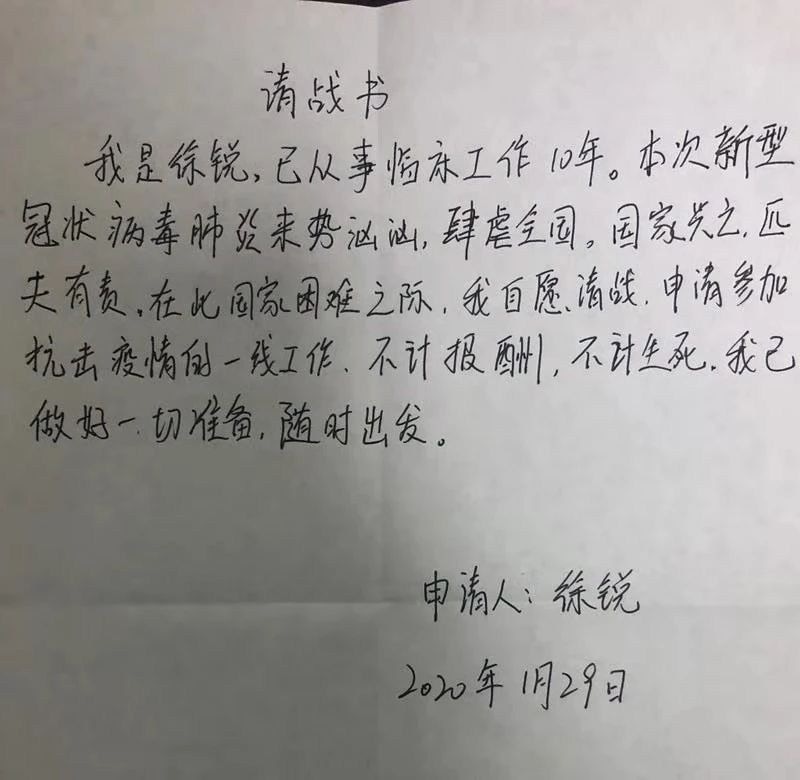 请战书
我是徐锐,已从事临床工作10年。本次新型
冠状病毒肺炎来势汹汹,肆虐全国。国家兴亡,匹
夫有责。在此国家困难之际,我自愿请战,申请参加
抗击疫情的一线工作、不计报酬,不计生死。我已
做好一切准备,随时出发。
申请人:徐锐
2020年1月29日